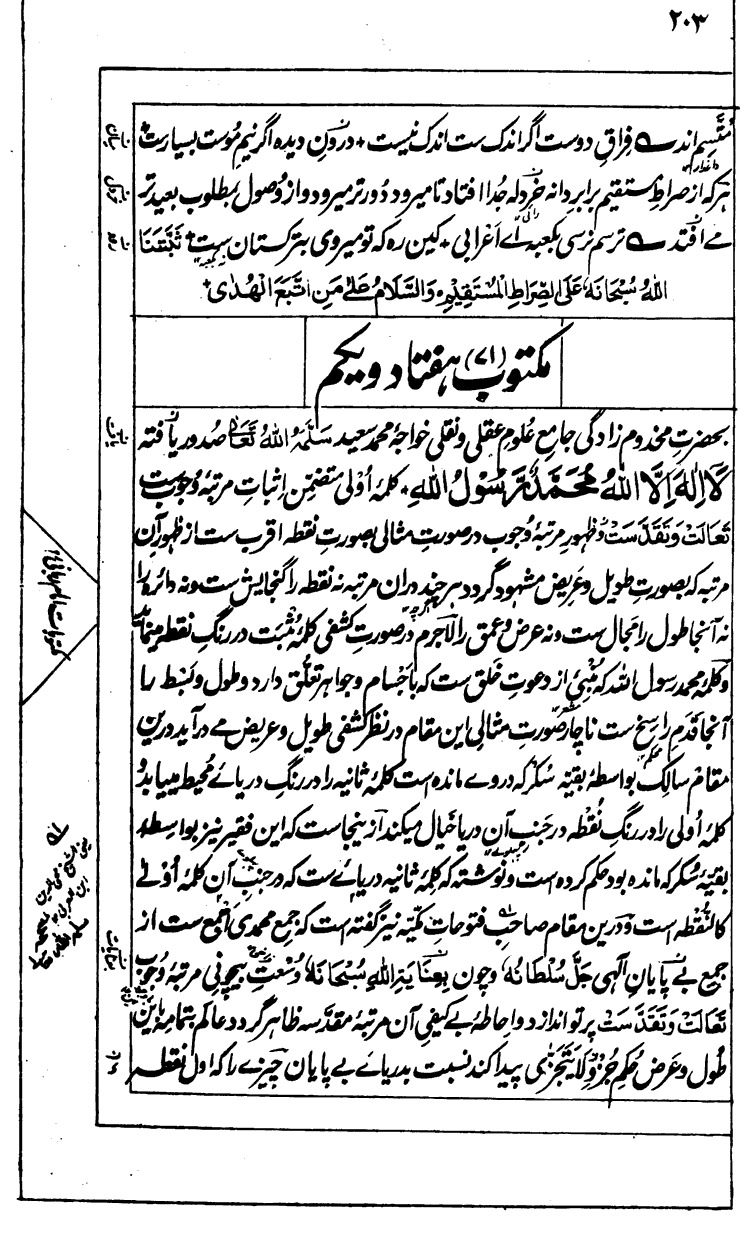 ٢٠٣
مُتَّسِم اند ؎ فراقِ دوست اگر اندک ست اندک نیست + درونِ دیده اگر نیم مُوست بسیارست +
هر که از صراطِ مستقیم برابر دانه خردله جُدا افتاد تا میرود دُور تر میرود و از وُصول بمطلوب بعید تر
مے افتد ؎ ترسم نرسی بکعبه اے اَعرابی + کین ره که تو میروی بترکستان ست + ثَبَّتَنَا
اللهُ سُبْحَانَهُ عَلَى الصِّرَاطِ الْمُسْتَقِيْمِ وَالسَّلَامُ عَلٰى مَنِ اتَّبَعَ الْهُدٰى +
مکتوب (٧١) هفتاد و یکم
بحضرتِ مخدوم زادگی جامعِ عُلومِ عقلی و نقلی خواجه محمد سعید سَلَّمَهُ اللهُ تَعَالٰى صدور یافته
لَا اِلٰهَ اِلَّا اللهُ مُحَمَّدٌ رَّسُوْلُ اللهِ + کلمهٔ اُولٰی متضمّنِ اِثباتِ مرتبهٔ وُجوب ست
تَعَالَتْ وَتَقَدَّسَتْ وَظهورِ مرتبهٔ وُجوب در صورتِ مثالی بصورتِ نقطه اقرب ست از ظهورِ آن
مرتبه که بصورتِ طویل و عَریض مشهود گردد هر چند در ان مرتبه نه نقطه را گنجایش ست و نه دائره را
نه آنجا طول را مجال ست و نه عرض و عمق را لاجرم در صورتِ کشفی کلمهٔ مُثبَت در رنگِ نقطه مینماید
و کلمهٔ محمد رسول الله که مُنبِئ از دعوتِ خَلق ست که باَجسام و جواهر تعلّق دارد و طول و بَسط را
آنجا قَدَمِ راسخ ست ناچار صورتِ مثالیِ این مقام در نظرِ کشفی طویل و عریض مے در آید درین
مقام سالِک بواسطهٔ بقیّهٔ سُکر که در وے مانده است کلمهٔ ثانیه را در رنگِ دریائے مُحیط مییابد و
کلمهٔ اُولٰی را در رنگِ نُقطه در جَنبِ آن دریا خیال میکند ازینجاست که این فقیر نیز بواسطهٔ
بقیّهٔ سُکر که مانده بود حکم کرده است و نوشته که کلمهٔ ثانیه دریائے ست که در جنبِ آن کلمهٔ اُولٰے
کالنُّقطه است وَ درین مقام صاحبِ فتوحاتِ مکّیّه نیز گفته است که جمعِ محمدی اَجمع ست از
جمعِ اِلٰهی جَلَّ سُلْطَانُهُ وَ چون بِعِنَایَةِ اللهِ سُبْحَانَهُ وُسْعَتِ بیچونیِ مرتبهٔ وُجُوب
تَعَالَتْ وَتَقَدَّسَتْ پرتو اندازد و اِحاطهٔ بے کیفیِ آن مرتبهٔ مقدّسه ظاهر گردد عالم بتمامه باین
طُول و عَرض حُکمِ جُزْوُ لَا يَتَجَزّٰى پیدا کند نسبت بدریائے بے پایان چیزے را که اول نقطه